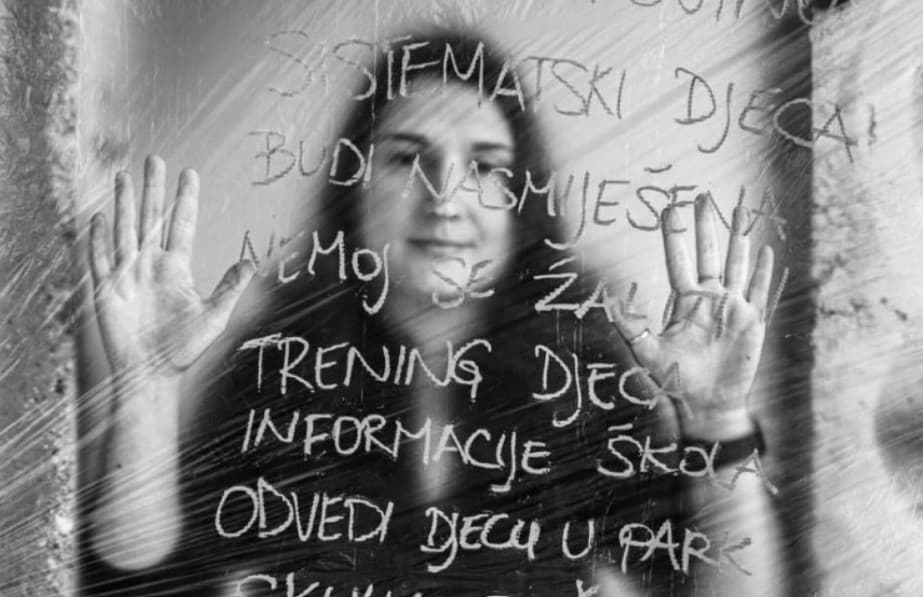 SISTEMATSKI DJECA!
BUDI NASMIJEŠENA
NEMOJ SE ŽALITI!
TRENING DJECA
INFORMACIJE ŠKOLA
ODVEDI DJECU U PARK